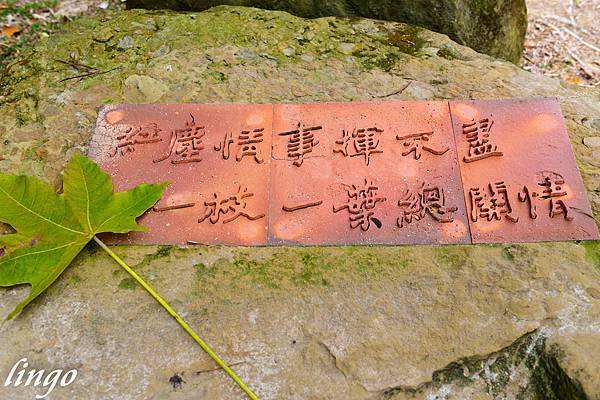 紅塵情事揮不盡
一枝一葉總關情
lingo